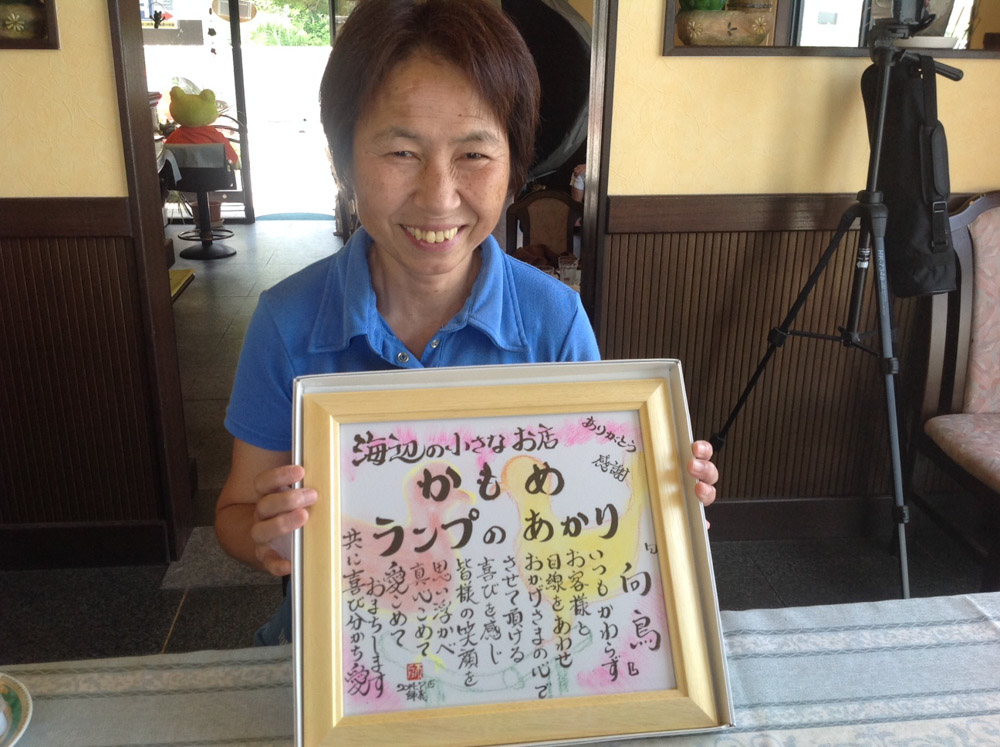 海辺の小さなお店
ありがとう
感謝
かもめ
ランプのあかり
「向鳥」
いつもかわらず
お客様と
目線をあわせ
おかげさまの心で
させて頂ける
喜びを感じ
皆様の笑顔を
思い浮かべ
真心こめて
愛こめて
おまちします
共に喜び分かち愛